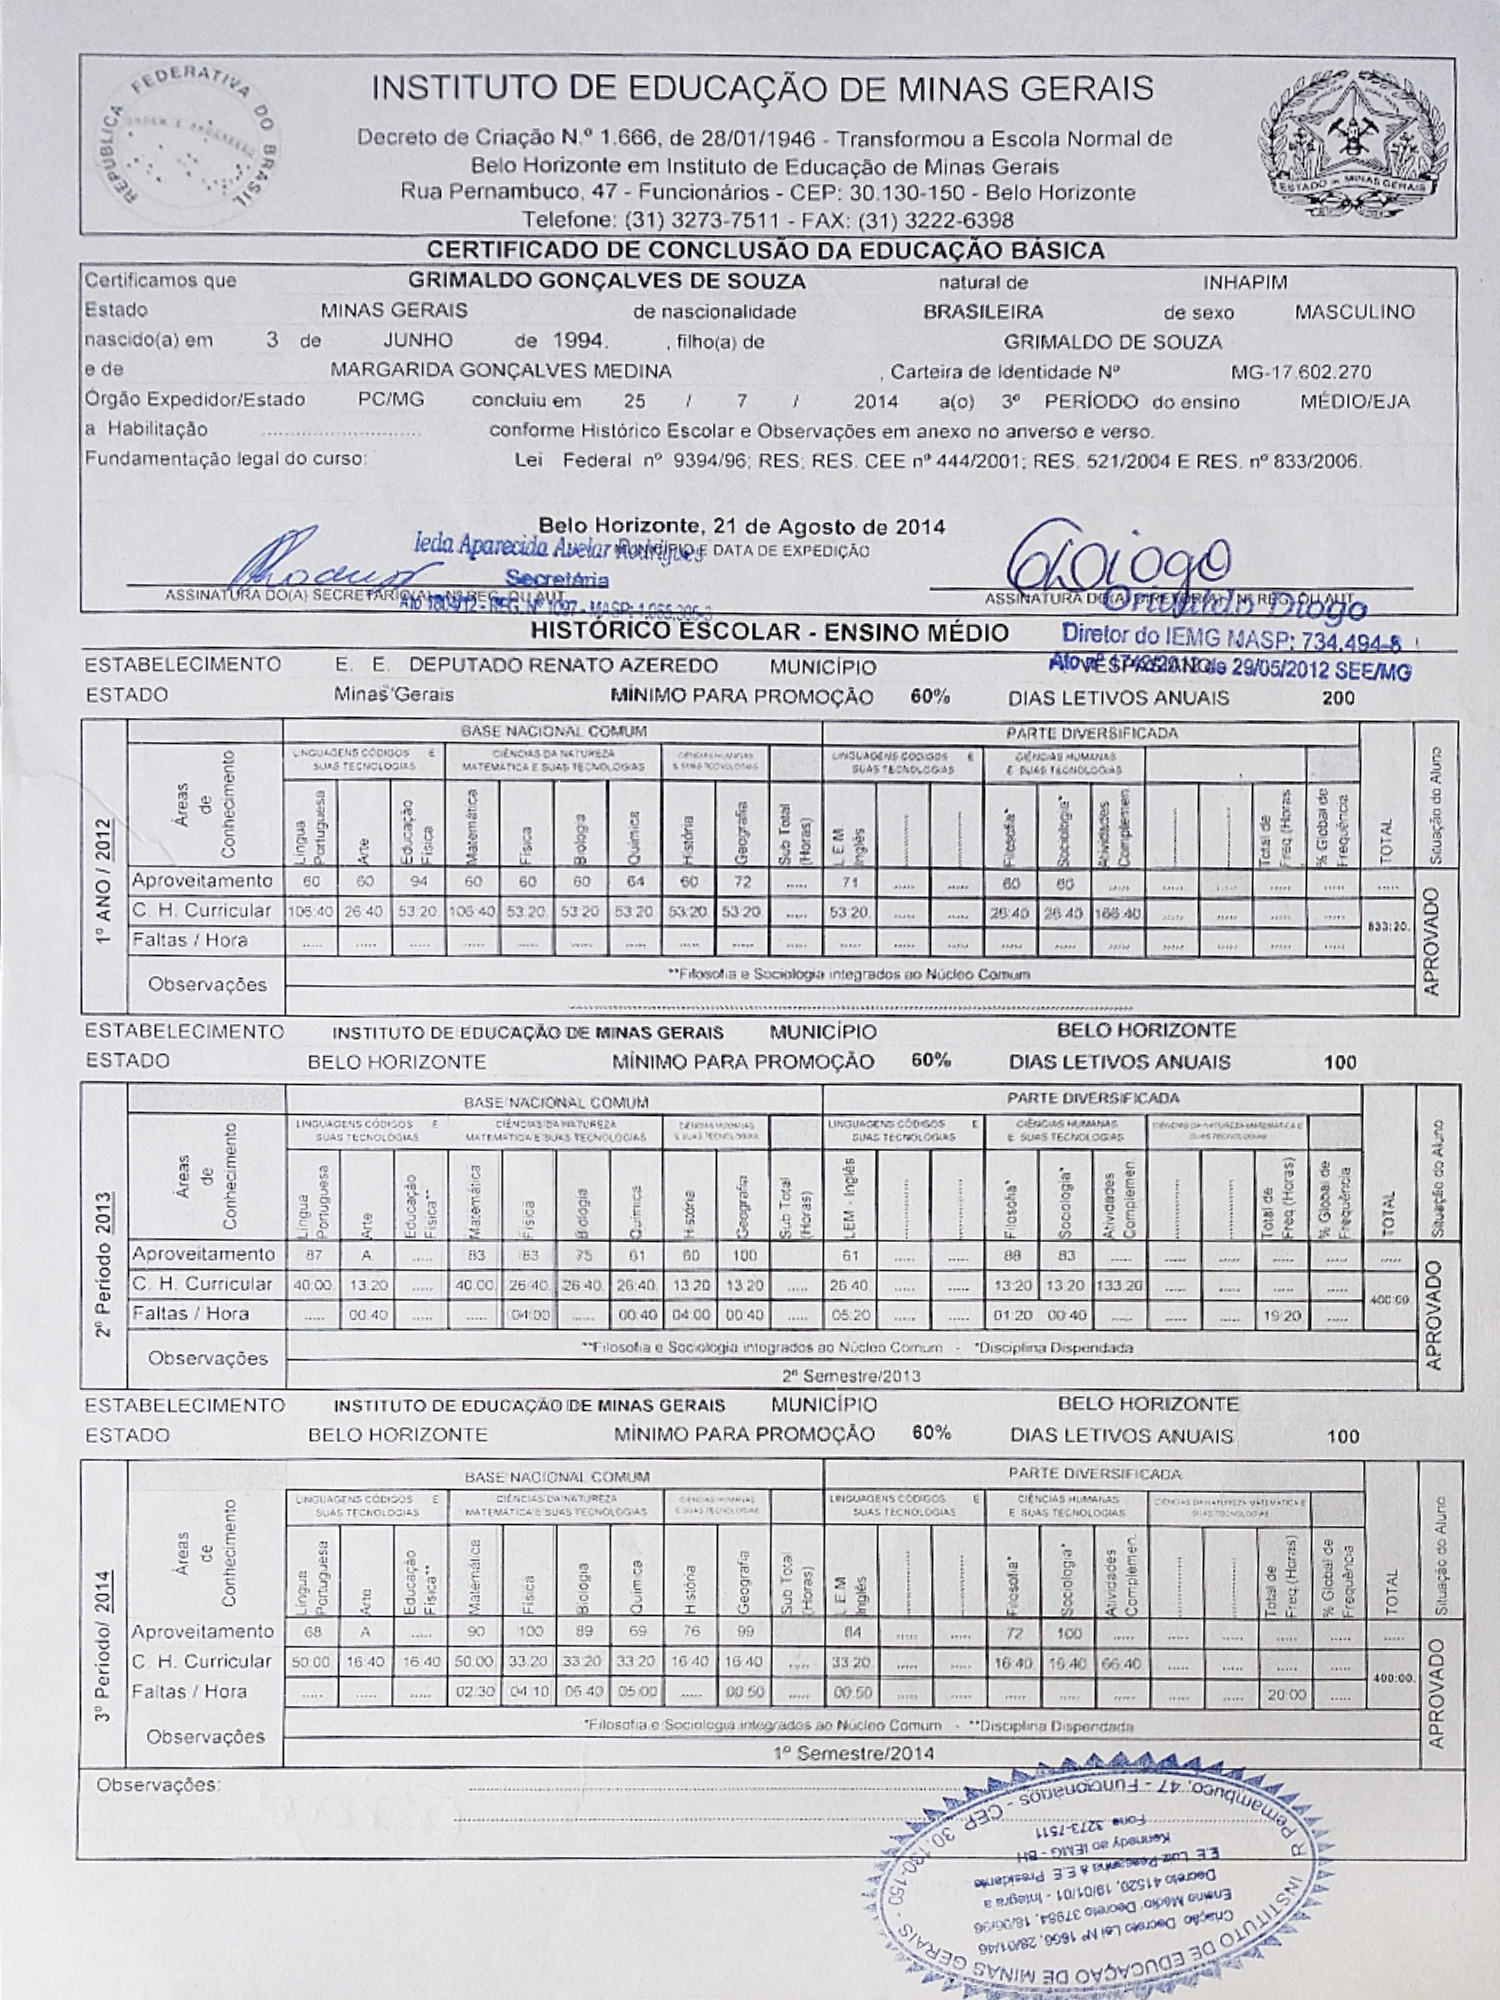 REPÚBLICA FEDERATIVA DO BRASIL
ORDEM E PROGRESSO
INSTITUTO DE EDUCAÇÃO DE MINAS GERAIS
Decreto de Criação N.º 1.666, de 28/01/1946 - Transformou a Escola Normal de
Belo Horizonte em Instituto de Educação de Minas Gerais
Rua Pernambuco, 47 - Funcionários - CEP: 30.130-150 - Belo Horizonte
Telefone: (31) 3273-7511 - FAX: (31) 3222-6398
ESTADO DE MINAS GERAIS
CERTIFICADO DE CONCLUSÃO DA EDUCAÇÃO BÁSICA
Certificamos que GRIMALDO GONÇALVES DE SOUZA natural de INHAPIM
Estado MINAS GERAIS de nascionalidade BRASILEIRA de sexo MASCULINO
nascido(a) em 3 de JUNHO de 1994. , filho(a) de GRIMALDO DE SOUZA
e de MARGARIDA GONÇALVES MEDINA , Carteira de Identidade Nº MG-17.602.270
Órgão Expedidor/Estado PC/MG concluiu em 25 / 7 / 2014 a(o) 3º PERÍODO do ensino MÉDIO/EJA
a Habilitação .............................. conforme Histórico Escolar e Observações em anexo no anverso e verso.
Fundamentação legal do curso: Lei Federal nº 9394/96; RES; RES. CEE nº 444/2001; RES. 521/2004 E RES. nº 833/2006.
Belo Horizonte, 21 de Agosto de 2014
Ieda Aparecida Avelar Rodrigues MUNICÍPIO E DATA DE EXPEDIÇÃO
Secretária
ASSINATURA DO(A) SECRETÁRIO(A) - Nº REG. OU AUT.
ASSINATURA DO(A) DIRETOR(A) - Nº REG. OU AUT.
Diogo
HISTÓRICO ESCOLAR - ENSINO MÉDIO
Diretor do IEMG MASP: 734.494-8
ESTABELECIMENTO E. E. DEPUTADO RENATO AZEREDO MUNICÍPIO VESPASIANO
de 29/05/2012 SEE/MG
ESTADO Minas Gerais MÍNIMO PARA PROMOÇÃO 60% DIAS LETIVOS ANUAIS 200
1º ANO / 2012
BASE NACIONAL COMUM PARTE DIVERSIFICADA
LINGUAGENS CÓDIGOS E SUAS TECNOLOGIAS CIÊNCIAS DA NATUREZA MATEMÁTICA E SUAS TECNOLOGIAS CIÊNCIAS HUMANAS E SUAS TECNOLOGIAS LINGUAGENS CÓDIGOS E SUAS TECNOLOGIAS CIÊNCIAS HUMANAS E SUAS TECNOLOGIAS
Áreas de Conhecimento Língua Portuguesa Arte Educação Física Matemática Física Biologia Química História Geografia Sub Total (Horas) L.E.M. Inglês Filosofia* Sociologia* Atividades Complemen. Total de Freq.(Horas) % Global de Frequência TOTAL Situação do Aluno
Aproveitamento 60 60 94 60 60 60 64 60 72 ..... 71 ..... ..... 60 60 ..... ..... ..... ..... ..... .....
C. H. Curricular 106:40 26:40 53:20 106:40 53:20 53:20 53:20 53:20 53:20 ..... 53:20 ..... ..... 26:40 26:40 166:40 ..... ..... ..... ..... 833:20.
Faltas / Hora ..... ..... ..... ..... ..... ..... ..... ..... ..... ..... ..... ..... ..... ..... ..... ..... ..... ..... ..... .....
APROVADO
Observações **Filosofia e Sociologia integrados ao Núcleo Comum
ESTABELECIMENTO INSTITUTO DE EDUCAÇÃO DE MINAS GERAIS MUNICÍPIO BELO HORIZONTE
ESTADO BELO HORIZONTE MÍNIMO PARA PROMOÇÃO 60% DIAS LETIVOS ANUAIS 100
2º Período 2013
BASE NACIONAL COMUM PARTE DIVERSIFICADA
LINGUAGENS CÓDIGOS E SUAS TECNOLOGIAS CIÊNCIAS DA NATUREZA MATEMÁTICA E SUAS TECNOLOGIAS CIÊNCIAS HUMANAS E SUAS TECNOLOGIAS LINGUAGENS CÓDIGOS E SUAS TECNOLOGIAS CIÊNCIAS HUMANAS E SUAS TECNOLOGIAS CIÊNCIAS DA NATUREZA MATEMÁTICA E SUAS TECNOLOGIAS
Áreas de Conhecimento Língua Portuguesa Arte Educação Física** Matemática Física Biologia Química História Geografia Sub Total (Horas) LEM - Inglês Filosofia* Sociologia* Atividades Complemen. Total de Freq.(Horas) % Global de Frequência TOTAL Situação do Aluno
Aproveitamento 87 A ..... 83 83 75 61 60 100 ..... 61 ..... ..... 88 83 ..... ..... ..... ..... ..... .....
C. H. Curricular 40:00 13:20 ..... 40:00 26:40 26:40 26:40 13:20 13:20 ..... 26:40 ..... ..... 13:20 13:20 133:20 ..... ..... ..... ..... 400:00
Faltas / Hora ..... 00:40 ..... ..... 04:00 ..... 00:40 04:00 00:40 ..... 05:20 ..... ..... 01:20 00:40 ..... ..... ..... 19:20 .....
APROVADO
Observações **Filosofia e Sociologia integrados ao Núcleo Comum - *Disciplina Dispendada
2º Semestre/2013
ESTABELECIMENTO INSTITUTO DE EDUCAÇÃO DE MINAS GERAIS MUNICÍPIO BELO HORIZONTE
ESTADO BELO HORIZONTE MÍNIMO PARA PROMOÇÃO 60% DIAS LETIVOS ANUAIS 100
3º Período/ 2014
BASE NACIONAL COMUM PARTE DIVERSIFICADA
LINGUAGENS CÓDIGOS E SUAS TECNOLOGIAS CIÊNCIAS DA NATUREZA MATEMÁTICA E SUAS TECNOLOGIAS CIÊNCIAS HUMANAS E SUAS TECNOLOGIAS LINGUAGENS CÓDIGOS E SUAS TECNOLOGIAS CIÊNCIAS HUMANAS E SUAS TECNOLOGIAS CIÊNCIAS DA NATUREZA MATEMÁTICA E SUAS TECNOLOGIAS
Áreas de Conhecimento Língua Portuguesa Arte Educação Física** Matemática Física Biologia Química História Geografia Sub Total (Horas) L.E.M. Inglês Filosofia* Sociologia* Atividades Complemen. Total de Freq.(Horas) % Global de Frequência TOTAL Situação do Aluno
Aproveitamento 68 A ..... 90 100 89 69 76 99 84 ..... ..... 72 100 ..... ..... ..... ..... ..... .....
C. H. Curricular 50:00 16:40 16:40 50:00 33:20 33:20 33:20 16:40 16:40 ..... 33:20 ..... ..... 16:40 16:40 66:40 ..... ..... ..... ..... 400:00.
Faltas / Hora ..... ..... ..... 02:30 04:10 06:40 05:00 ..... 00:50 ..... 00:50 ..... ..... ..... ..... ..... ..... ..... 20:00 .....
APROVADO
Observações *Filosofia e Sociologia integrados ao Núcleo Comum - **Disciplina Dispendada
1º Semestre/2014
Observações:
INSTITUTO DE EDUCAÇÃO DE MINAS GERAIS
R Pernambuco, 47 - Funcionários - CEP. 30.130-150 -
Criação Decreto Lei Nº 1666, 28/01/46
Ensino Médio: Decreto 37984, 18/06/96
Decreto 41520, 19/01/01 - Integra a
E.E. Luiz Peçanha à E.E. Presidente
Kennedy ao IEMG - BH
Fone 3273-7511